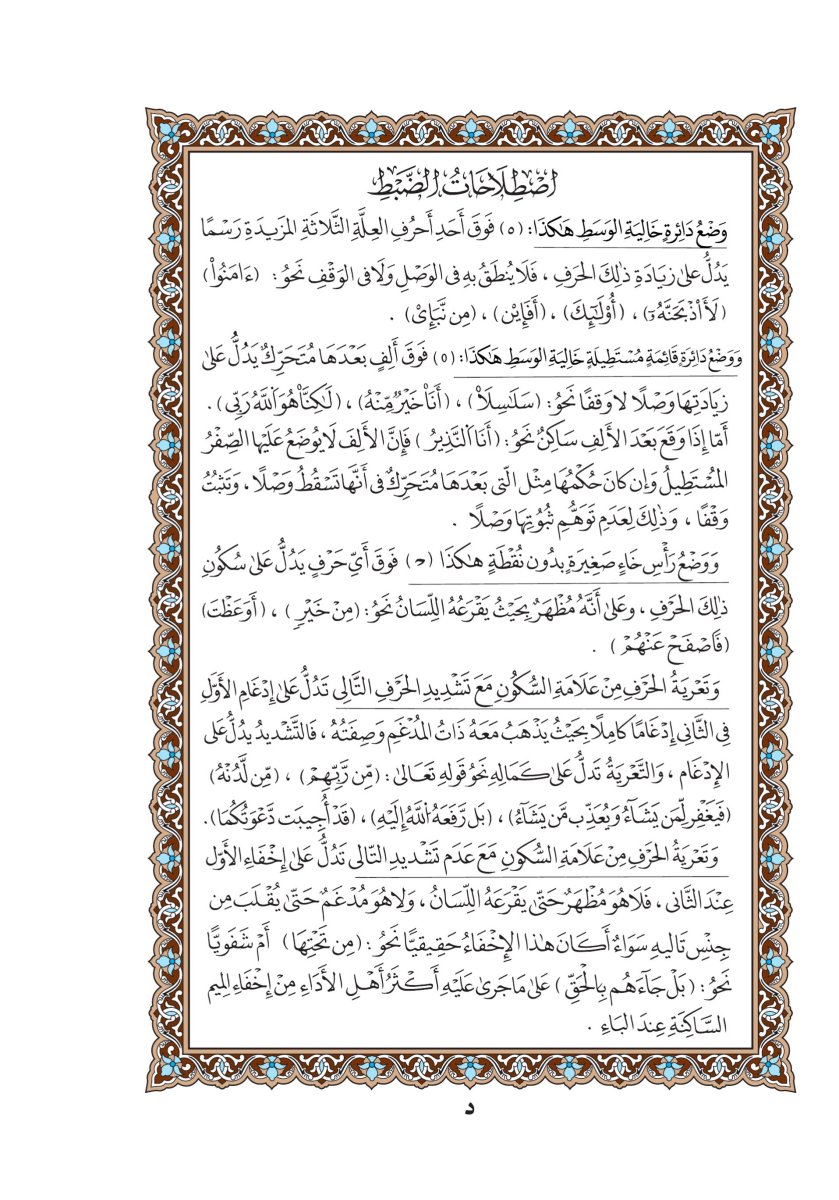 اصْطِلَاحَاتُ الضَّبْطِ
وَضْعُ دَائِرَةٍ خَالِيَةِ الوَسَطِ هَكَذَا: (ه) فَوْقَ أَحَدِ أَحْرُفِ العِلَّةِ الثَّلَاثَةِ المَزِيدَةِ رَسْمًا
يَدُلُّ عَلىٰ زِيَادَةِ ذٰلِكَ الحَرْفِ ، فَلَا يُنطَقُ بِهِ فِى الوَصْلِ وَلَا فِى الوَقْفِ نَحْوُ: (ءَامَنُواْ)
(لَأَاْذْبَحَنَّهُۥٓ) ، (أُوْلَـٰٓئِكَ) ، (أَفَإِيْن) ، (مِن نَّبَإِىْ) .
وَوَضْعُ دَائِرَةٍ قَائِمَةٍ مُسْتَطِيلَةٍ خَالِيَةِ الوَسَطِ هَكَذَا: (٥) فَوْقَ أَلِفٍ بَعْدَهَا مُتَحَرِّكٌ يَدُلُّ عَلىٰ
زِيَادَتِهَا وَصْلًا لا وَقْفًا نَحْوُ: (سَلَـٰسِلَا۠) ، (أَنَا۠ خَيْرٌ مِّنْهُ) ، (لَّـٰكِنَّا۠ هُوَ ٱللَّهُ رَبِّى) .
أَمَّا إِذَا وَقَعَ بَعْدَ الأَلِفِ سَاكِنٌ نَحْوُ: (أَنَا ٱلنَّذِيرُ) فَإِنَّ الأَلِفَ لَا يُوضَعُ عَلَيْهَا الصِّفْرُ
المُسْتَطِيلُ وَإِن كَانَ حُكْمُهَا مِثْلَ الَّتِى بَعْدَهَا مُتَحَرِّكٌ فِى أَنَّهَا تَسْقُطُ وَصْلًا ، وَتَثْبُتُ
وَقْفًا ، وَذٰلِكَ لِعَدَمِ تَوَهُّمِ ثُبُوتِهَا وَصْلًا .
وَوَضْعُ رَأْسِ خَاءٍ صَغِيرَةٍ بِدُونِ نُقْطَةٍ هٰكَذَا (ح) فَوْقَ أَىِّ حَرْفٍ يَدُلُّ عَلىٰ سُكُونِ
ذٰلِكَ الحَرْفِ ، وعَلىٰ أَنَّهُ مُظْهَرٌ بِحَيْثُ يَقْرَعُهُ اللِّسَانُ نَحْوُ: (مِنْ خَيْرٍ) ، (أَوَعَظْتَ)
(فَاصْفَحْ عَنْهُمْ) .
وَتَعْرِيَةُ الحَرْفِ مِنْ عَلَامَةِ السُّكُونِ مَعَ تَشْدِيدِ الحَرْفِ التَّالِى تَدُلُّ عَلىٰ إِدْغَامِ الأَوَّلِ
فِى الثَّانِى إِدْغَامًا كَامِلًا بِحَيْثُ يَذْهَبُ مَعَهُ ذَاتُ المُدْغَمِ وَصِفَتُهُ ، فَالتَّشْدِيدُ يَدُلُّ عَلىٰ
الإِدْغَامِ ، وَالتَّعْرِيَةُ تَدُلُّ عَلىٰ كَمَالِهِ نَحْوُ قَوْلِهِ تَعَالىٰ: (مِّن رَّبِّهِمْ) ، (مِّن لَّدُنْهُ)
(فَيَغْفِرُ لِمَن يَشَآءُ وَيُعَذِّبُ مَن يَشَآءُ) ، (بَل رَّفَعَهُ ٱللَّهُ إِلَيْهِ) ، (قَدْ أُجِيبَت دَّعْوَتُكُمَا).
وَتَعْرِيَةُ الحَرْفِ مِنْ عَلَامَةِ السُّكُونِ مَعَ عَدَمِ تَشْدِيدِ التَّالِى تَدُلُّ عَلىٰ إِخْفَاءِ الأَوَّلِ
عِنْدَ الثَّانِى ، فَلَا هُوَ مُظْهَرٌ حَتّىٰ يَقْرَعَهُ اللِّسَانُ ، وَلَا هُوَ مُدْغَمٌ حَتّىٰ يُقْلَبَ مِن
جِنْسِ تَالِيهِ سَوَاءٌ أَكَانَ هٰذَا الإِخْفَاءُ حَقِيقِيًّا نَحْوُ: (مِن تَحْتِهَا) أَمْ شَفَوِيًّا
نَحْوُ: (بَلْ جَآءَهُم بِالْحَقِّ) عَلىٰ مَا جَرىٰ عَلَيْهِ أَكْثَرُ أَهْلِ الأَدَاءِ مِنْ إِخْفَاءِ المِيمِ
السَّاكِنَةِ عِندَ البَاءِ .
د